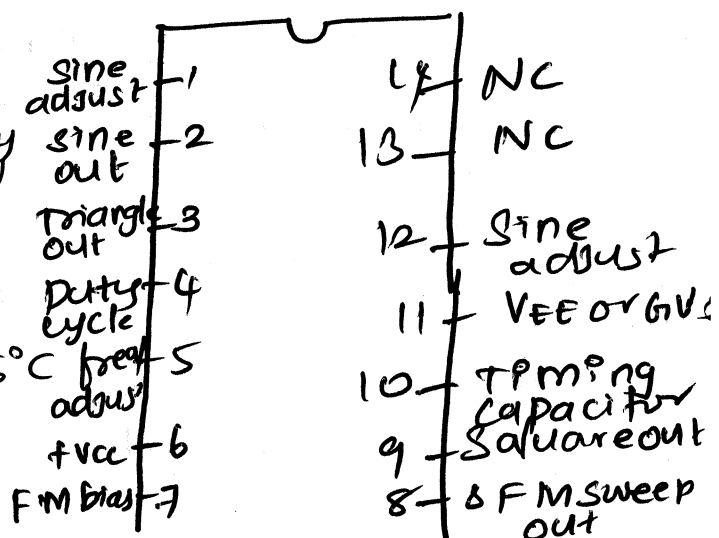 Sine
adjust 1
Sine 2
out
Triangle 3
out
Dutty 4
cycle
5°C freq 5
adjus
+vcc 6
FM bias 7
14 NC
13 NC
12 Sine
adjust
11 VEE or GND
10 Timing
capacitor
9 Squareout
8 FM sweep
out